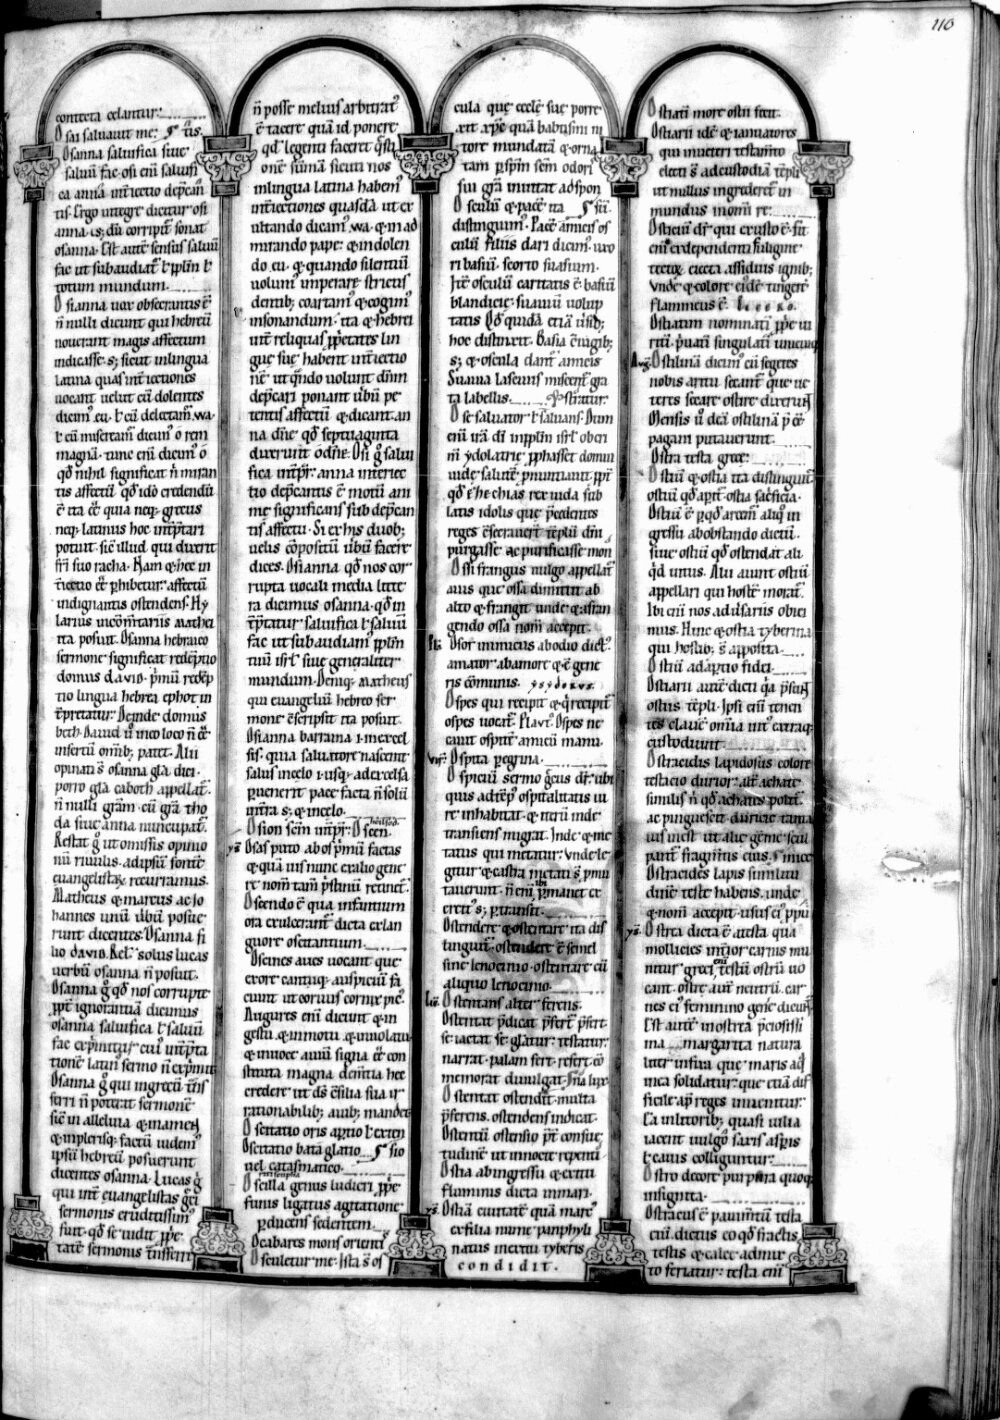 110
contecta celantur.
Osi saluauit me.
Osanna saluifica siue
saluū fac. osi eni saluifi
ca anna int̄iectio dep̄can
tis. Ergo integre dicitur osi
anna. s; dū corripit̄ sonat
osanna. Est autē sensus saluū
fac ut subaudiat̄ ł pplm ł
totum mundum.
Osianna uox obsecrantis ē
n̄ nulli dicunt qui hebreū
nouerant magis affectum
indicasse. s; sicut in lingua
latina quas int̄iectiones
uocant uelut cū dolentes
dicim' eu. ł cū delectam̄. ua.
ł cū miseram̄ dicim' o rem
magnā. tunc enī dicim' o
qd̄ nihil significat n̄ miran
tis affectū. qd̄ ido credendū
ē ita ēē quia neq; grecus
neq; latinus hoc int̄ptari
potuit. sic illud qui dixerit
fr̄i suo racha. Nam & hec in
t̄iectio ēē phibetur. affectū
indignantis ostendens. Hy
larius in cōm̄tariis mathei
ita posuit. Osanna hebraico
sermone significat redēptio
domus dauid. p̄mū redēp
tio lingua hebrea
t̄pretatur. Deinde domus
beth. Dauid ū in eo loco n̄ ēē
insertū omīb; patet. Alii
opinati s̄ osanna gla dici.
porro gla caboth appellat̄.
n̄ nulli grām. cū grā tho
da siue anna nuncupat̄.
Restat g̊ ut omissis opinio
nū riuulis. ad ipsū fontē
euangelistaꝝ recurramus.
Matheus & marcus ac io
hannes unū ūbū posue
runt dicentes. Osanna fi
lio dauid. solus lucas
uerbū osanna n̄ posuit.
Osanna g̊ qd̄ nos corrupte
ppt ignorantiā dicimus
osanna saluifica ł saluū
fac exp̄mitur cui' int̄pta
tionē latin' sermo n̄ exp̄mit
Osanna g̊ qui in grecū t̄ns
ferri n̄ poterat sermonē
sic in alleluia & in amen
& in plerisq; factū uidem'
ipsū hebreū posuerunt
dicentes osanna. Lucas g̊
qui int̄ euangelistas
sermonis eruditissim'
fuit. qd̄ se uidit ppe
tatē sermonis t̄nsferre
n̄ posse melius arbitrat'
ē tacere quā id ponere
qd̄ legenti faceret
one. sūmā sicuta nos
in lingua latina habem'
int̄iectiones quasdā ut ex
ultando dicam' ua. & in ad
mirando pape. & in dolen
do eu. & quando silentiū
uolum' imperare strictis
dentib; coartam' & cogim'
in sonandum. ita & hebrei
int̄ reliquas pp̄etates lin
gue sue habent int̄iectio
nē. ut q̄ndo uolunt dnm
dep̄cari ponant ūbū pe
tentis affectū & dicant. an
na dn̄e qd̄ septuaginta
dixerunt odn̄e. Osi g̊ salui
fica int̄ptr. anna interiec
tio dep̄cantis ē motū ani
me significans sub dep̄can
tis affectu. Si ex his duob;
uelis cōpositū ūbū facere
dices. Osianna qd̄ nos cor
rupta uocali media litte
ra dicimus osanna. qd̄ in
t̄ptatur saluifica ł saluū
fac ut subaudiam' pplm
tuū isrl siue generaliter
mundum. Deniq; Matheus
qui euangeliū hebreo ser
mone c̄scripsit ita posuit.
Osianna barrama .i. in excel
sis. quia saluatore nascente
salus in celo .i. usq; ad excelsa
puenerit pace facta n̄ solū
in tr̄a s; & in celo.
Osion sem int̄ptr. Oscen.
Osas puto ab os p̄mū factas
& quā uis nunc ex alio gene
re nom̄ tam̄ p̄stinū retinet.
Oscendo ē qua infantium
ora exulcerant̄ dicta ex lan
guore oscitantium.
Oscines aues uocant que
c̄rore cantuq; auspiciū fa
ciunt. ut coruus cornix pic'.
Augures enī dicunt & in
gestu & in motu & in uolatu
& in uoce auiū signa ēē con
stituta magna dem̄tia hec
credere ut ds̄ c̄silia sua ir
rationabilib; auib; mandet
Oscitatio oris aptio ł exten
Oscitatio bata glatio
uel catasmatico.
Oscilla genus ludicri ppe
funis ligatus agitatione
pducens sedentem.
Oscabares mons orient'
Osculetur me. Ista s̄ os
cula que eccle sue porre
xit xpe quā babtismi ni
tore mundatā & orna
tam p spm sem odori
sui grā inuitat ad spon
Osculū & pacē ita
distinguim'. Pacē amicis os
culū filiis dari dicim'. uxo
ri basiū. scorto suauium.
Itē osculū caritatis ē. basiū
blandicie. suauiū uolup
tatis. Qd̄ quidā etiā ūsib;
hoc distinxit. Basia c̄iugib;
s; & oscula dant̄ amicis
Suauia lasciuis miscent̄ gra
ta labellis.
Ose saluator ł saluans. Dum
enī irā dī in pplm isrl ob cri
m̄ ydolatrie pphasset domui
iude salutē pnuntiant. ppt
qd̄ ezechias rex iuda sub
latis idolis que p̄cedentes
reges c̄secrauerr̄ tēplū dni
purgasse ac purificasse mon
Ossifrangus uulgo appellat̄
auis que ossa dimittit ab
alto & frangit unde & a fran
gendo ossa nom̄ accepit.
Osor inimicus ab odio dict'.
amator ab amore & ē gene
ris cōmunis. ysydorus.
Ospes qui recipit & q̄ recipit̄
ospes uocat̄. Plaut'. Ospes ne
cauit ospitē amicū manu.
Ospita peregrina.
Ospiciū sermo grecus dr̄. ubi
quis ad tēp' ospitalitatis iu
re inhabitat & iterū inde
transiens migrat. Inde & me
tatus qui metatur. Unde le
gitur & castra metati s̄ p̄mu
tauerunt. n̄ enī ibi pmanet ex
ercit' s; ptransit.
Ostendere & ostentare ita dis
tinguit̄. ostendere ē semel
sine lenocinio. ostentare cū
aliquo lenocinio.
Ostentans alter ferens.
Ostentat p̄dicat p̄fert p̄fert
se. iactat se. glatur. testatur.
narrat. palam fert. refert. cō
memorat. diuulgat.
Ostentat ostendit. multa
p̄ferens. ostendens indicat.
Ostentū ostensio p̄t consue
tudinē ut innocit repenti
Ostia ab ingressu & exitu
fluminis dicta in mari.
Ostiā ciuitatē quā marc'
ex filia nunc panphyli
natus in exitu tyberis
condidit.
Ostiati more ostri fecit.
Ostiarii idē & ianuatores
qui in ueteri testam̄to
electi s̄ ad custodiā tēpli
ut nullus ingrederet̄ in
mundus
Osticiū dr̄ qui ex usto ē. sit
enī ex dependenti fuligine
tectoꝝ excocta assiduis ignib;
Unde & colore eius dē tangere
flammeus ē.
Ostiatim nominati ppe ui
riti puati singulati unicuiq
Ostilinā dicim' cū segetes
nobis artu secant̄ que ue
teres secare ostire dixerunt
Mensis ū deā ostilinā p̄ēē
pagani putauerunt.
Ostra testa grece.
Ostiū & ostia ita distinguit̄
ostiū qd̄ aperit. ostia sacrificia.
Ostiū ē p qd̄ arcem' aliq̄ in
gressu ab obstando dictū.
siue ostiū qd̄ ostendat ali
q̄d intus. Alii aiunt ostiū
appellari qui hostē morat̄.
Ibi enī nos adūsariis obici
mus. Hinc & ostia tyberina
qui hostib; s̄ apposita.
Ostiū adaptio fidei.
Ostiarii autē dicti qa p̄sunt
ostiis tēpli. Ipsi enī tenen
tes clauē om̄ia int' extraq;
custodiunt.
Ostracidis lapidosus colore
testacio durior. alt̄ achate
similis n̄ qd̄ achatis polit̄.
ac pinguescit. duricie tanta
ius inest ut alie gēme scul
pant̄ fragmītis eius.
Ostracides lapis similitu
dinē teste habens. unde
& nom̄ accepit. usus ei' ppū
Ostrea dicta ē a testa qua
mollicies int̄ior carnis mu
nitur. greci enī testū ostrū uo
cant. ostre aut̄ neutrū. car
nes ei' feminino genē dicunt̄
Est autē in ostrea p̄ciosissi
ma margarita natura
liter in fixa que maris aq
nica solidatur. que etiā dif
ficile ap̄ reges inuenitur.
Ea in litorib; quasi uilia
iacent uulgo saxis asp̄is
ł cauis colliguntur.
Ostro decore purpura quoq;
insignita.
Ostracus ē pauim̄tū testa
enī dictus eo qd̄ fractis
testis & calce admix
to feriatur. testa enī